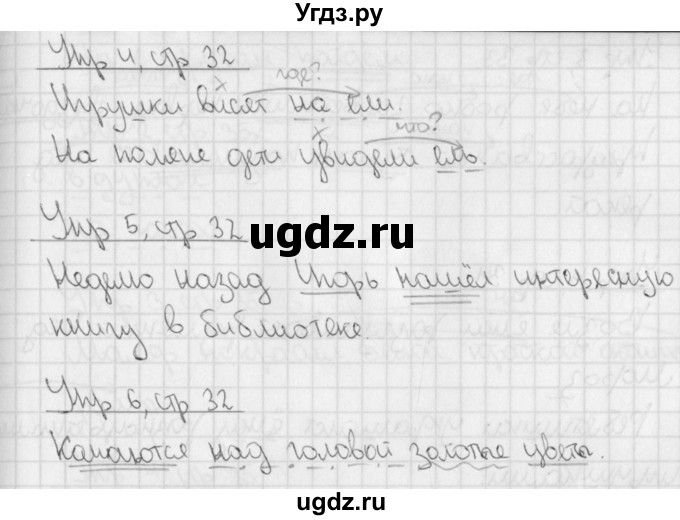 Угдз.ру
Упр 4, стр 32
где?
х
Игрушки висят на ели.
что?
х
На поляне дети увидели ель.
Упр 5, стр 32
ugdz.ru
Неделю назад Игорь нашёл интересную
книгу в библиотеке.
Упр 6, стр 32
Качаются над головой золотые цветы.
ugdz.ru